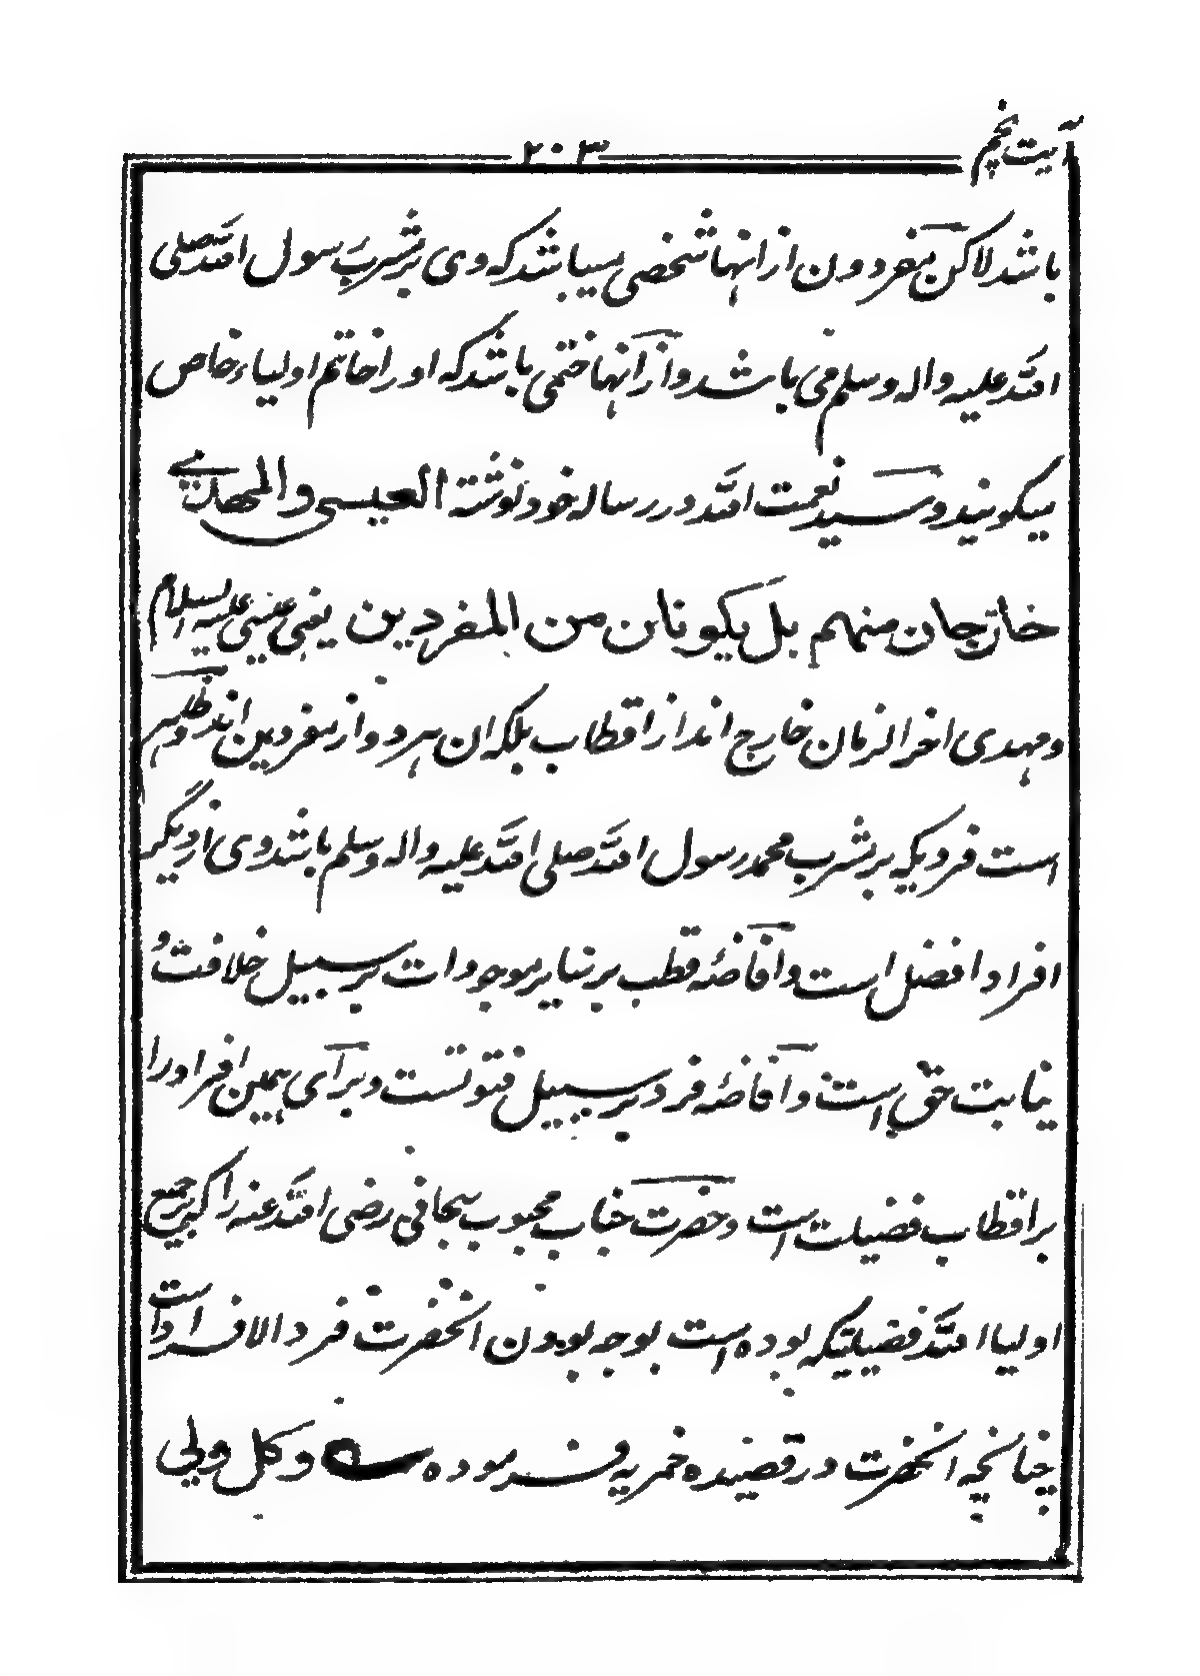 آیت پنجم
۲۰۳
باشد لاکن منفردون از انها شخصی میباشد که وی بر مشرب رسول الله صلی
الله علیه واله وسلم می باشد و از آنها ختمی باشد که او را خاتم اولیاء خاص
میگویند و سید نعمت الله در رساله خود نوشته العیسی والمهدی
خارجان منهم بل یکونان من المفردین یعنی عیسی علیه السلام
و مهدی اخر الزمان خارج اند از اقطاب بلکه ان هر دو از مفردین اند
است فردیکه بر مشرب محمد رسول الله صلی الله علیه واله وسلم باشد وی از دیگر
افراد افضل است و آفاضهٔ قطب بر سایر موجودات بر سبیل خلافت و
نیابت حق است و آفاضهٔ فرد بر سبیل فتوتست و برآی همین افراد را
بر اقطاب فضیلت است و حضرت جناب محبوب سبحانی رضی الله عنه را که بر جمیع
اولیا الله فضیلتیکه بوده است بوجه بودن انحضرت فرد الافراد است
چنانچه انحضرت در قصیده خمریه فرموده ے وکل ولی